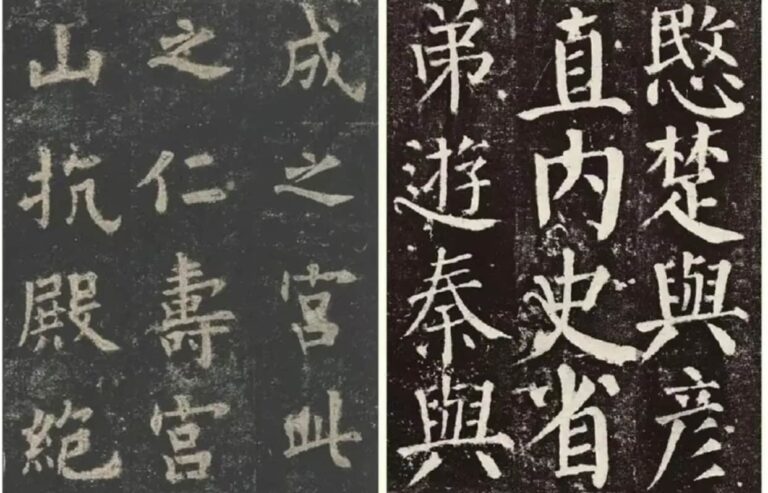 成之宮此
之仁壽宮
山抗殿絶
愍楚與彦
直内史省
弟遊秦與